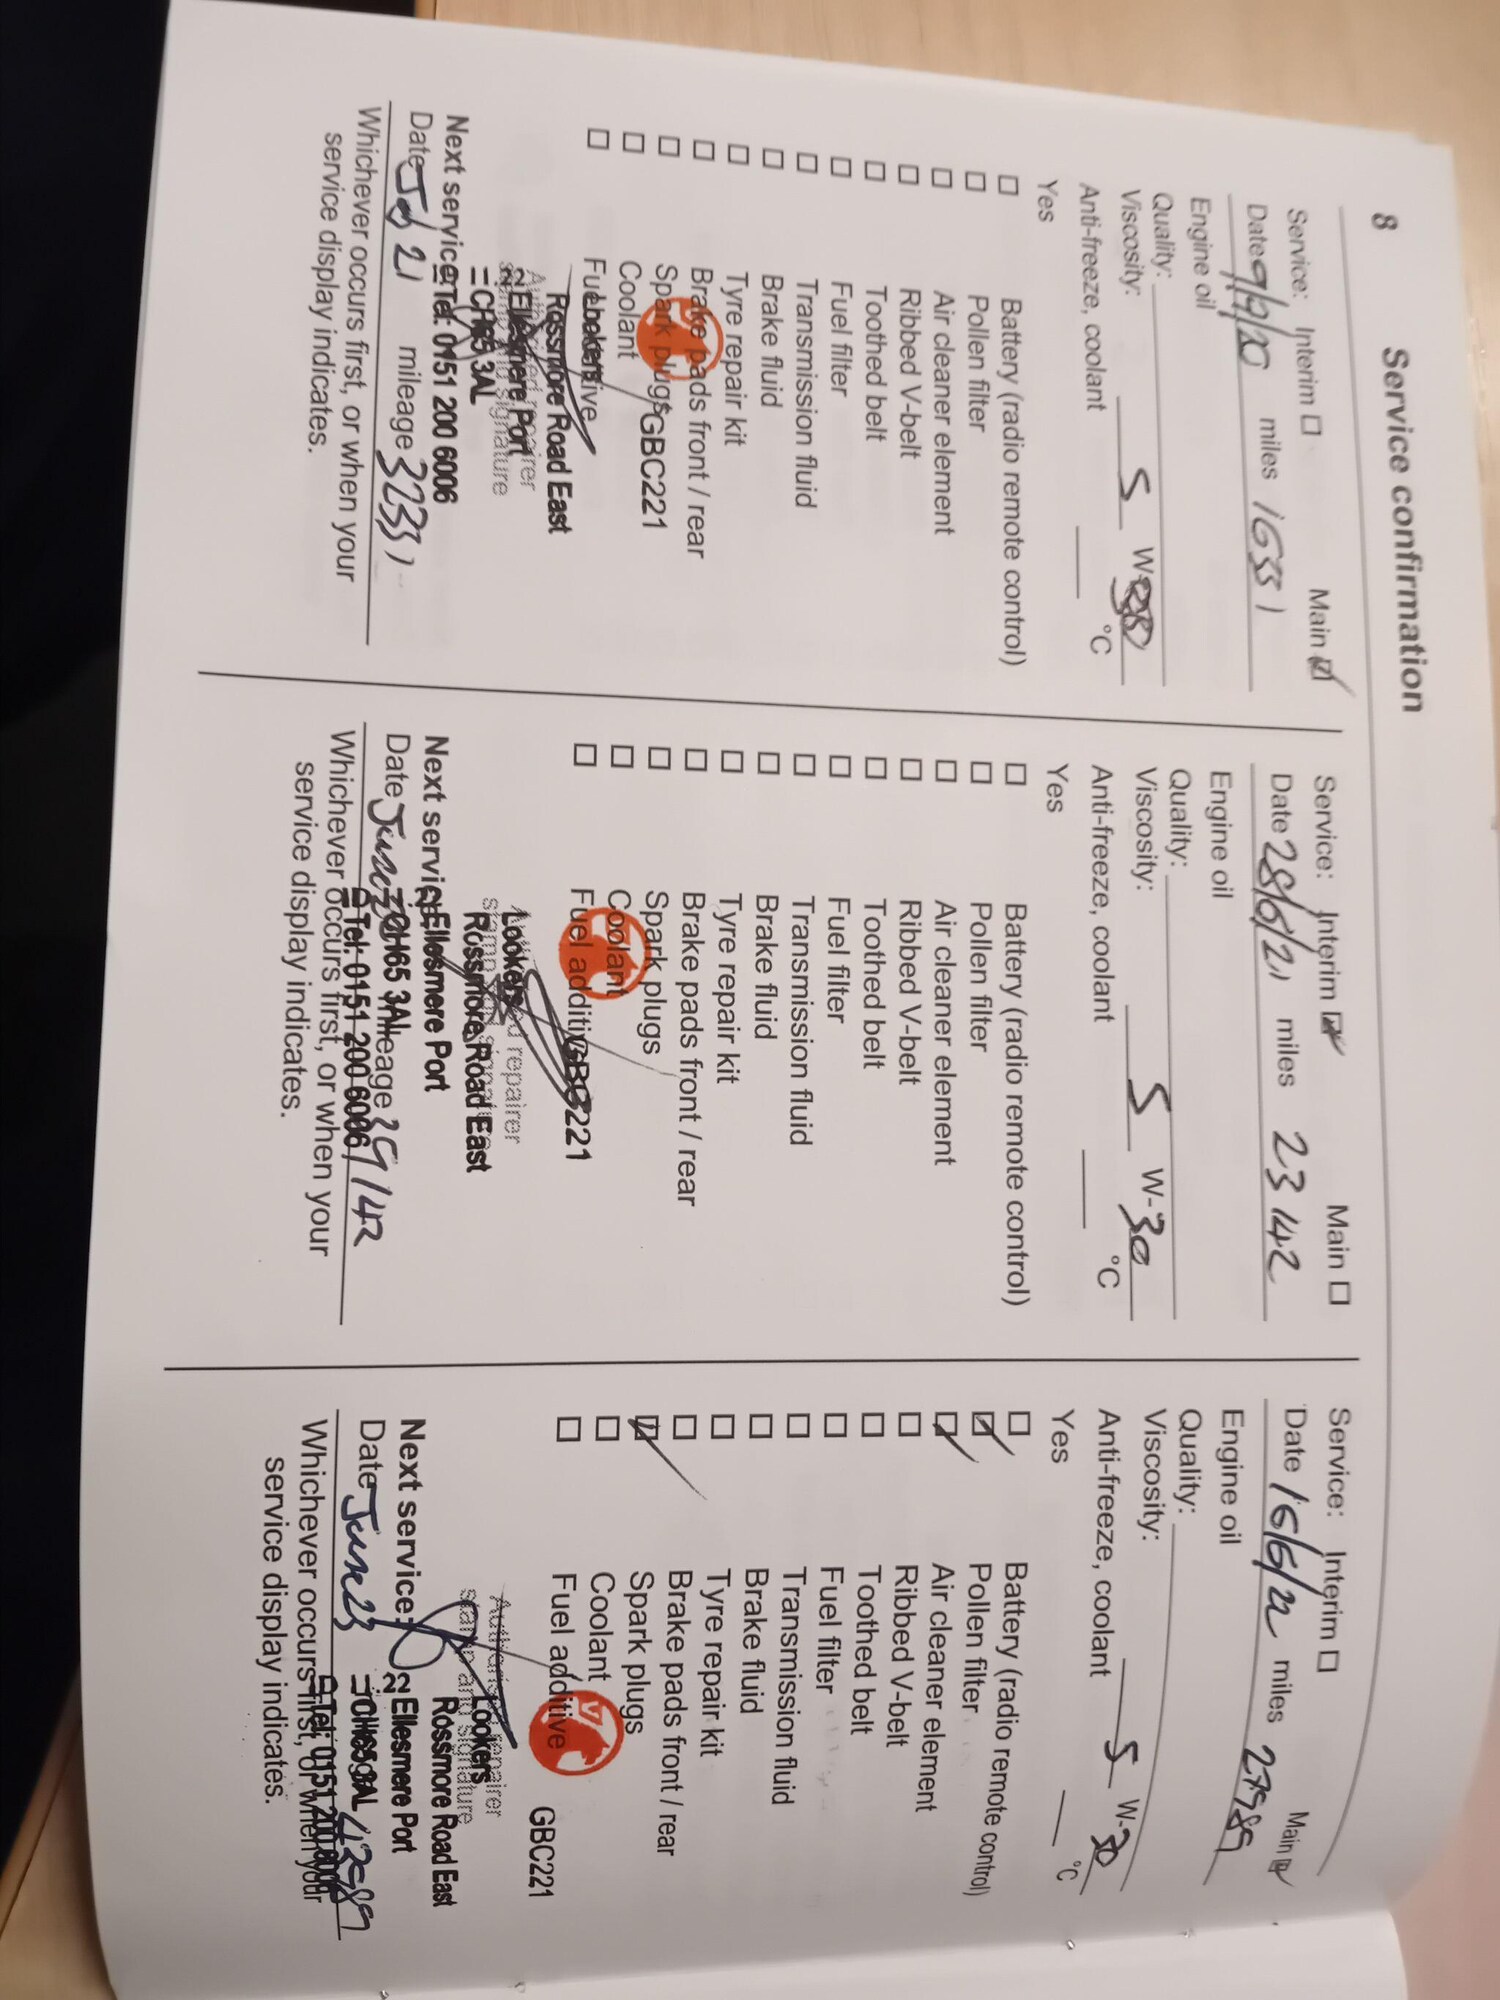 8
Service confirmation
Service: Interim ☐ Main ☑
Date 9/9/20 miles 16551
Engine oil
Quality:
Viscosity: 5 W-
Anti-freeze, coolant °C
Yes
☐ Battery (radio remote control)
☐ Pollen filter
☐ Air cleaner element
☐ Ribbed V-belt
☐ Toothed belt
☐ Fuel filter
☐ Transmission fluid
☐ Brake fluid
☐ Tyre repair kit
☐ Brake pads front / rear
☐ Spark plugs
☐ Coolant
☐ Fuel additive
GBC221
Lookers
Rossmore Road East
Ellesmere Port
CH65 3AL
Tel: 0151 200 6006
Authorised repairer
stamp and signature
Next service:
Date 21 mileage 32331
Whichever occurs first, or when your
service display indicates.
Service: Interim ☑ Main ☐
Date 28/6/21 miles 23142
Engine oil
Quality:
Viscosity: 5 W-30
Anti-freeze, coolant °C
Yes
☐ Battery (radio remote control)
☐ Pollen filter
☐ Air cleaner element
☐ Ribbed V-belt
☐ Toothed belt
☐ Fuel filter
☐ Transmission fluid
☐ Brake fluid
☐ Tyre repair kit
☐ Brake pads front / rear
☐ Spark plugs
☐ Coolant
☐ Fuel additive
GBC221
Lookers
Rossmore Road East
Ellesmere Port
CH65 3AL
Tel: 0151 200 6006
Authorised repairer
stamp and signature
Next service:
Date June mileage
Whichever occurs first, or when your
service display indicates.
Service: Interim ☐ Main ☑
Date 16/6/22 miles 27589
Engine oil
Quality:
Viscosity: 5 W-30
Anti-freeze, coolant °C
Yes
☐ Battery (radio remote control)
☑ Pollen filter
☑ Air cleaner element
☐ Ribbed V-belt
☐ Toothed belt
☐ Fuel filter
☐ Transmission fluid
☐ Brake fluid
☐ Tyre repair kit
☐ Brake pads front / rear
☑ Spark plugs
☐ Coolant
☐ Fuel additive
GBC221
Lookers
Rossmore Road East
Ellesmere Port
CH65 3AL
Tel: 0151 200 6006
Authorised repairer
stamp and signature
Next service:
Date June 23 mileage 42589
Whichever occurs first, or when your
service display indicates.